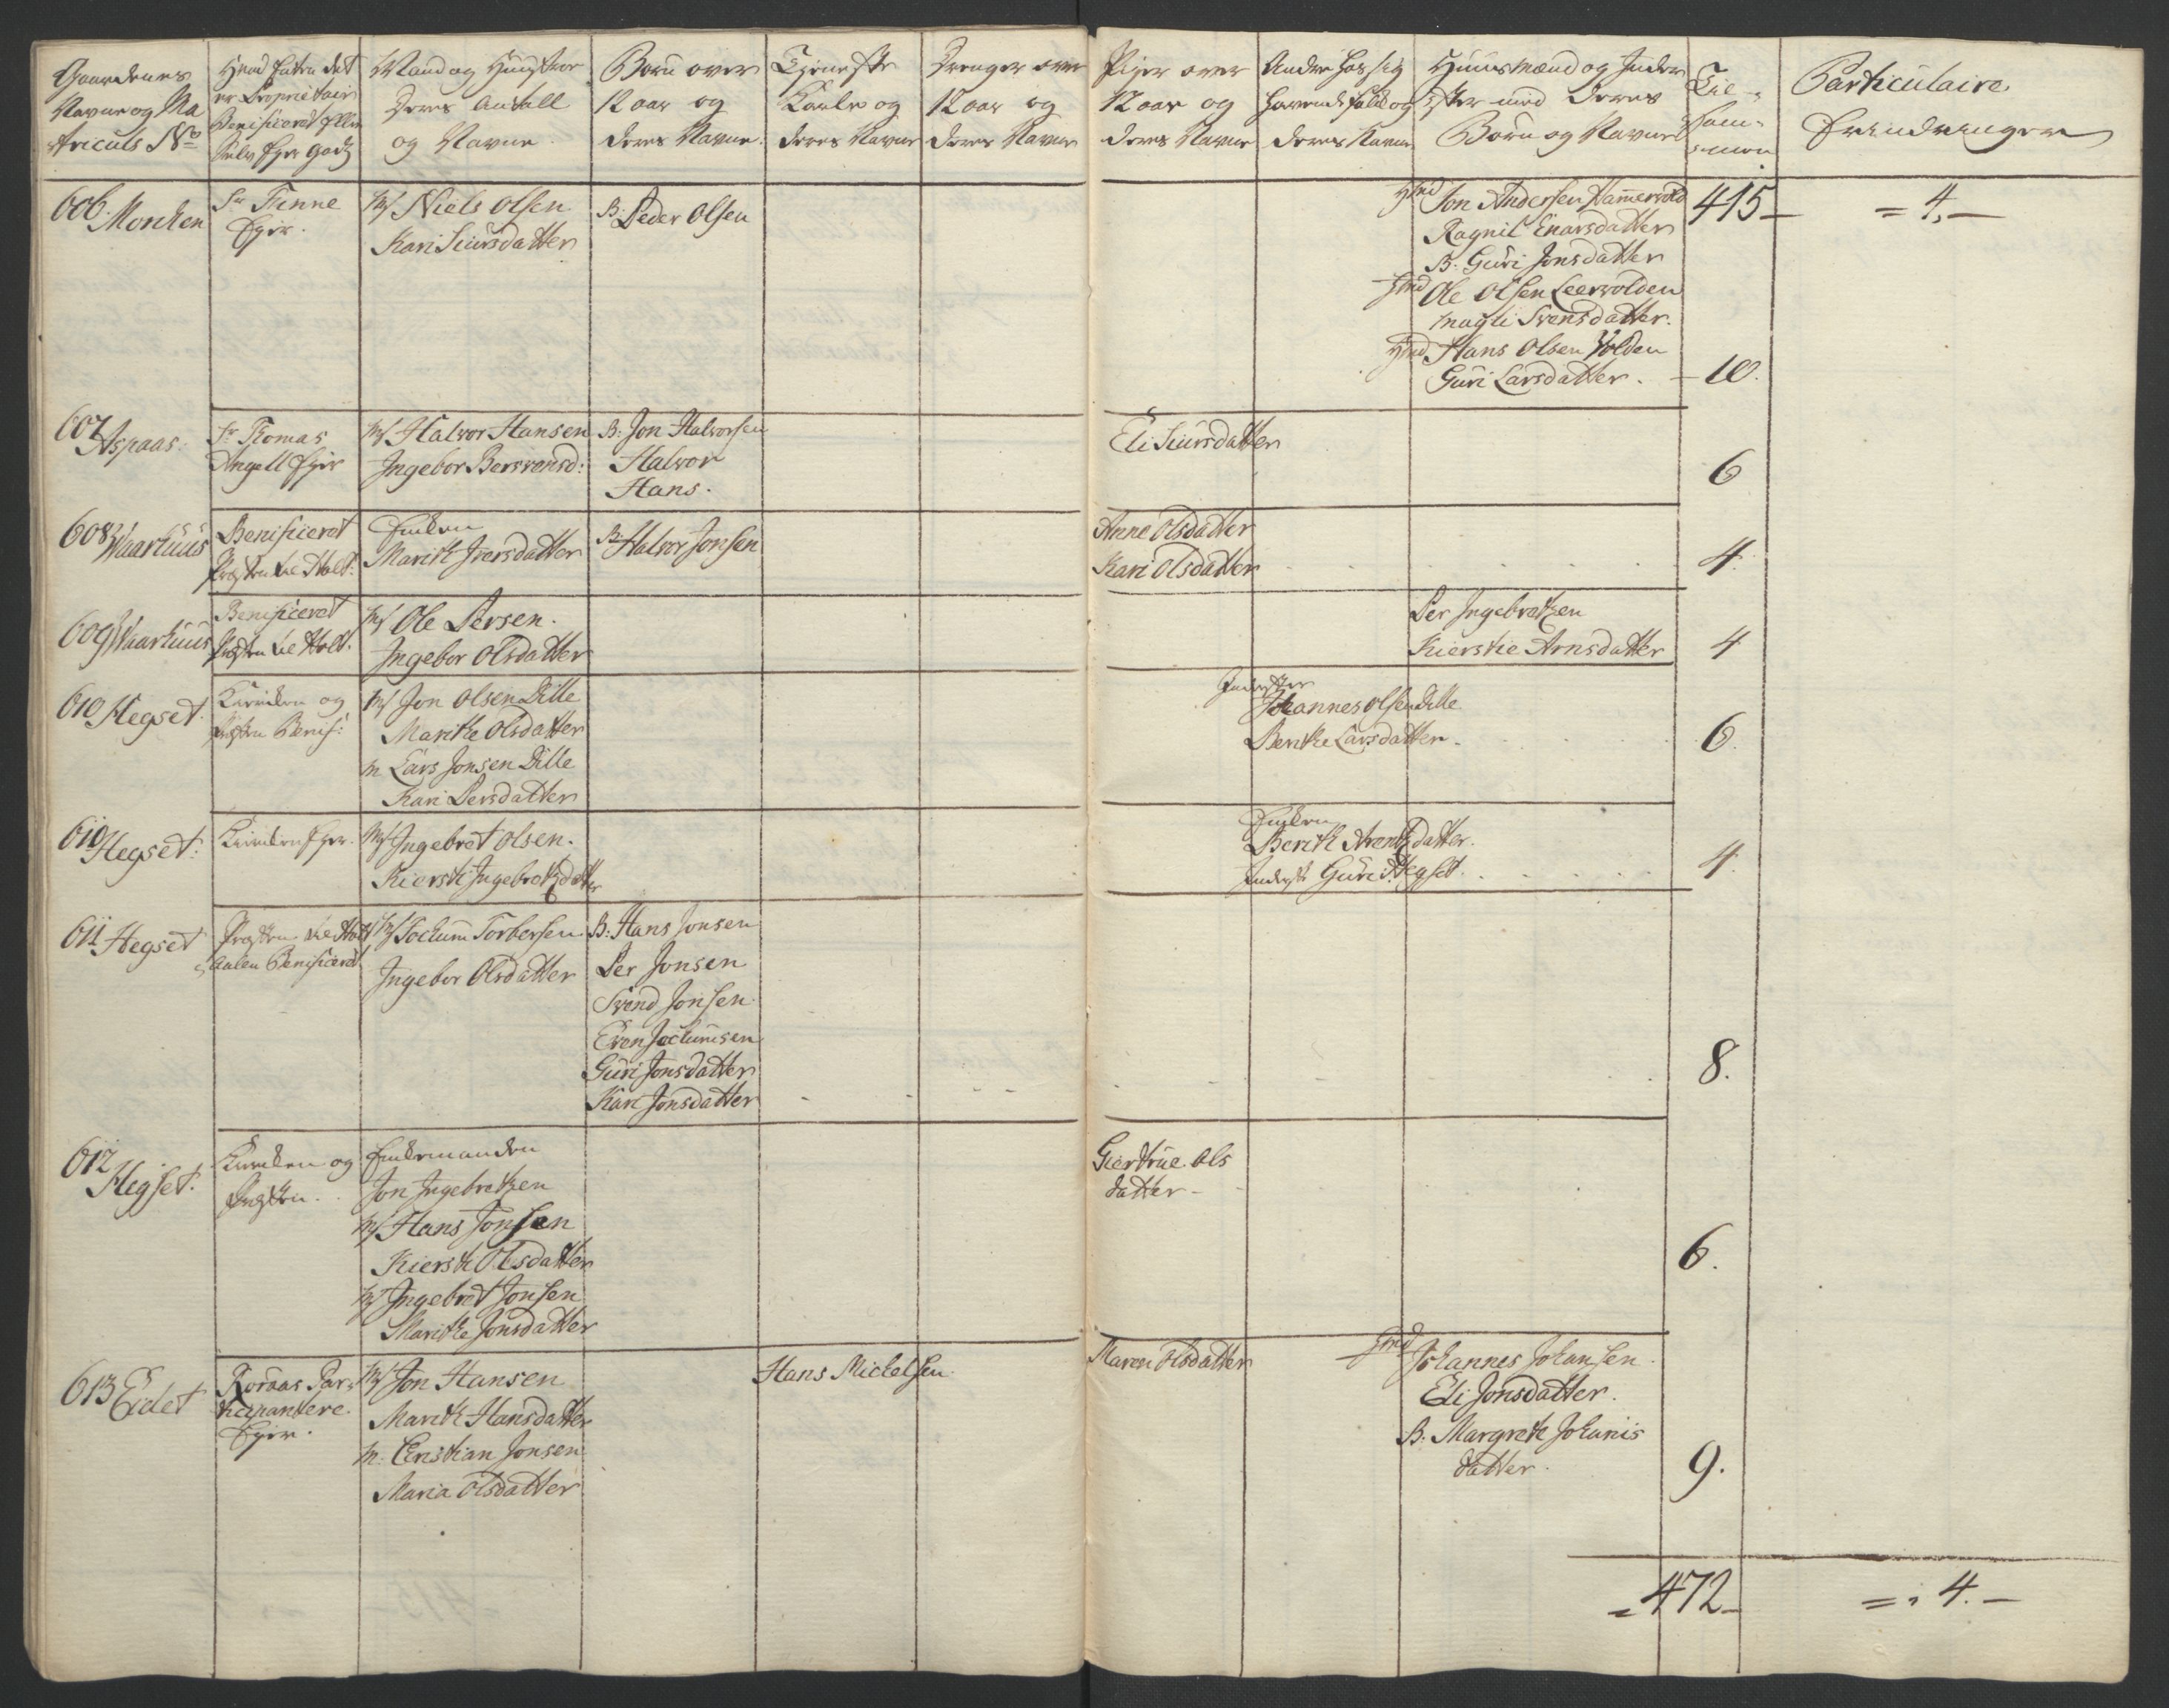 Gaardenes
Navne og Ma
triculs No
Hvad heller det
er Proprietair
Benificeret Eller
Selv Eyer Godtz
Mand og Hustroe
Deres Antall
og Navne
Børn over
12 aar og
deres Navne.
Tjeneste
Karle og
deres Navne
Drenger over
12 aar og
deres Navne
Piger over
12 aar og
deres Navne
Andre hos sig
havende folk og
deres Navne
Huusmænd og Inder
ster med deres
Børn og Navne
Til-
sam-
men
Particulaire
606. Monken
Sr Finne
Eyer.
M Niels Olsen
Kari Siursdatter
B: Peder Olsen
Hmd Jon Andersen Hammervold
Ragnil Enarsdatter
B: Guri Jonsdatter
Hmd Ole Olsen Leervolden
Magli Svensdatter.
Hmd Hans Olsen Volden
Guri Larsdatter.
415 —
= 4. —
— 10.
607 Aspaas.
Sr Thomas
Angell Eyer
M Halvor Hansen
Ingebor Bersvensd:
B: Jon Halvorsen
Halvor
Hans.
Eli Siursdatter
6
608 Waarhuus
Benificeret
Præsten til Holt.
Enken
Marith Iversdatter
B: Halvor Jonsen
Anne Olsdatter
Kari Olsdatter
4
609 Waarhuus
Benificeret
Præsten til Holt.
M Ole Persen.
Ingebor Olsdatter
Per Ingebretzen
Kierstie Arnsdatter
4
610 Hegset
Kirken og
Præsten Benif:
M Jon Olsen Dille
Marithe Olsdatter
M Lars Jonsen Dille
Kari Persdatter
Inderster
Johannes Olsen Dille
Berithe Larsdatter
6
610 Hegset:
Kirken Eyer.
M Ingebret Olsen.
Kiersti Ingebretzdatter
Enken
Berith Arentzdatter.
Inderste Guri Hegset.
4
611 Hegset
Præsten til Holt
Aalen Benificeret
M Jochum Torbersen
Ingebor Olsdatter
B: Hans Jonsen
Per Jonsen
Svend Jonsen
Even Jochumsen
Guri Jonsdatter
Kari Jonsdatter
8.
612 Hegset.
Kirken og
Præsten.
Enkemanden
Jon Ingebretzen
M Hans Jonsen
Kiersti Olsdatter
M Ingebret Jonsen
Marithe Jonsdatter
Giertrue Ols
datter
6.
613 Eidet
Roraas Par-
ticipantere
Eyer.
M Jon Hansen
Marith Hansdatter
M. Christian Jonsen
Maria Olsdatter
Hans Mickelsen
Maren Olsdatter
Hmd Johannes Johansen
Eli Jonsdatter.
B: Margrete Johanis
datter.
9.
= 472 —
= : 4. —